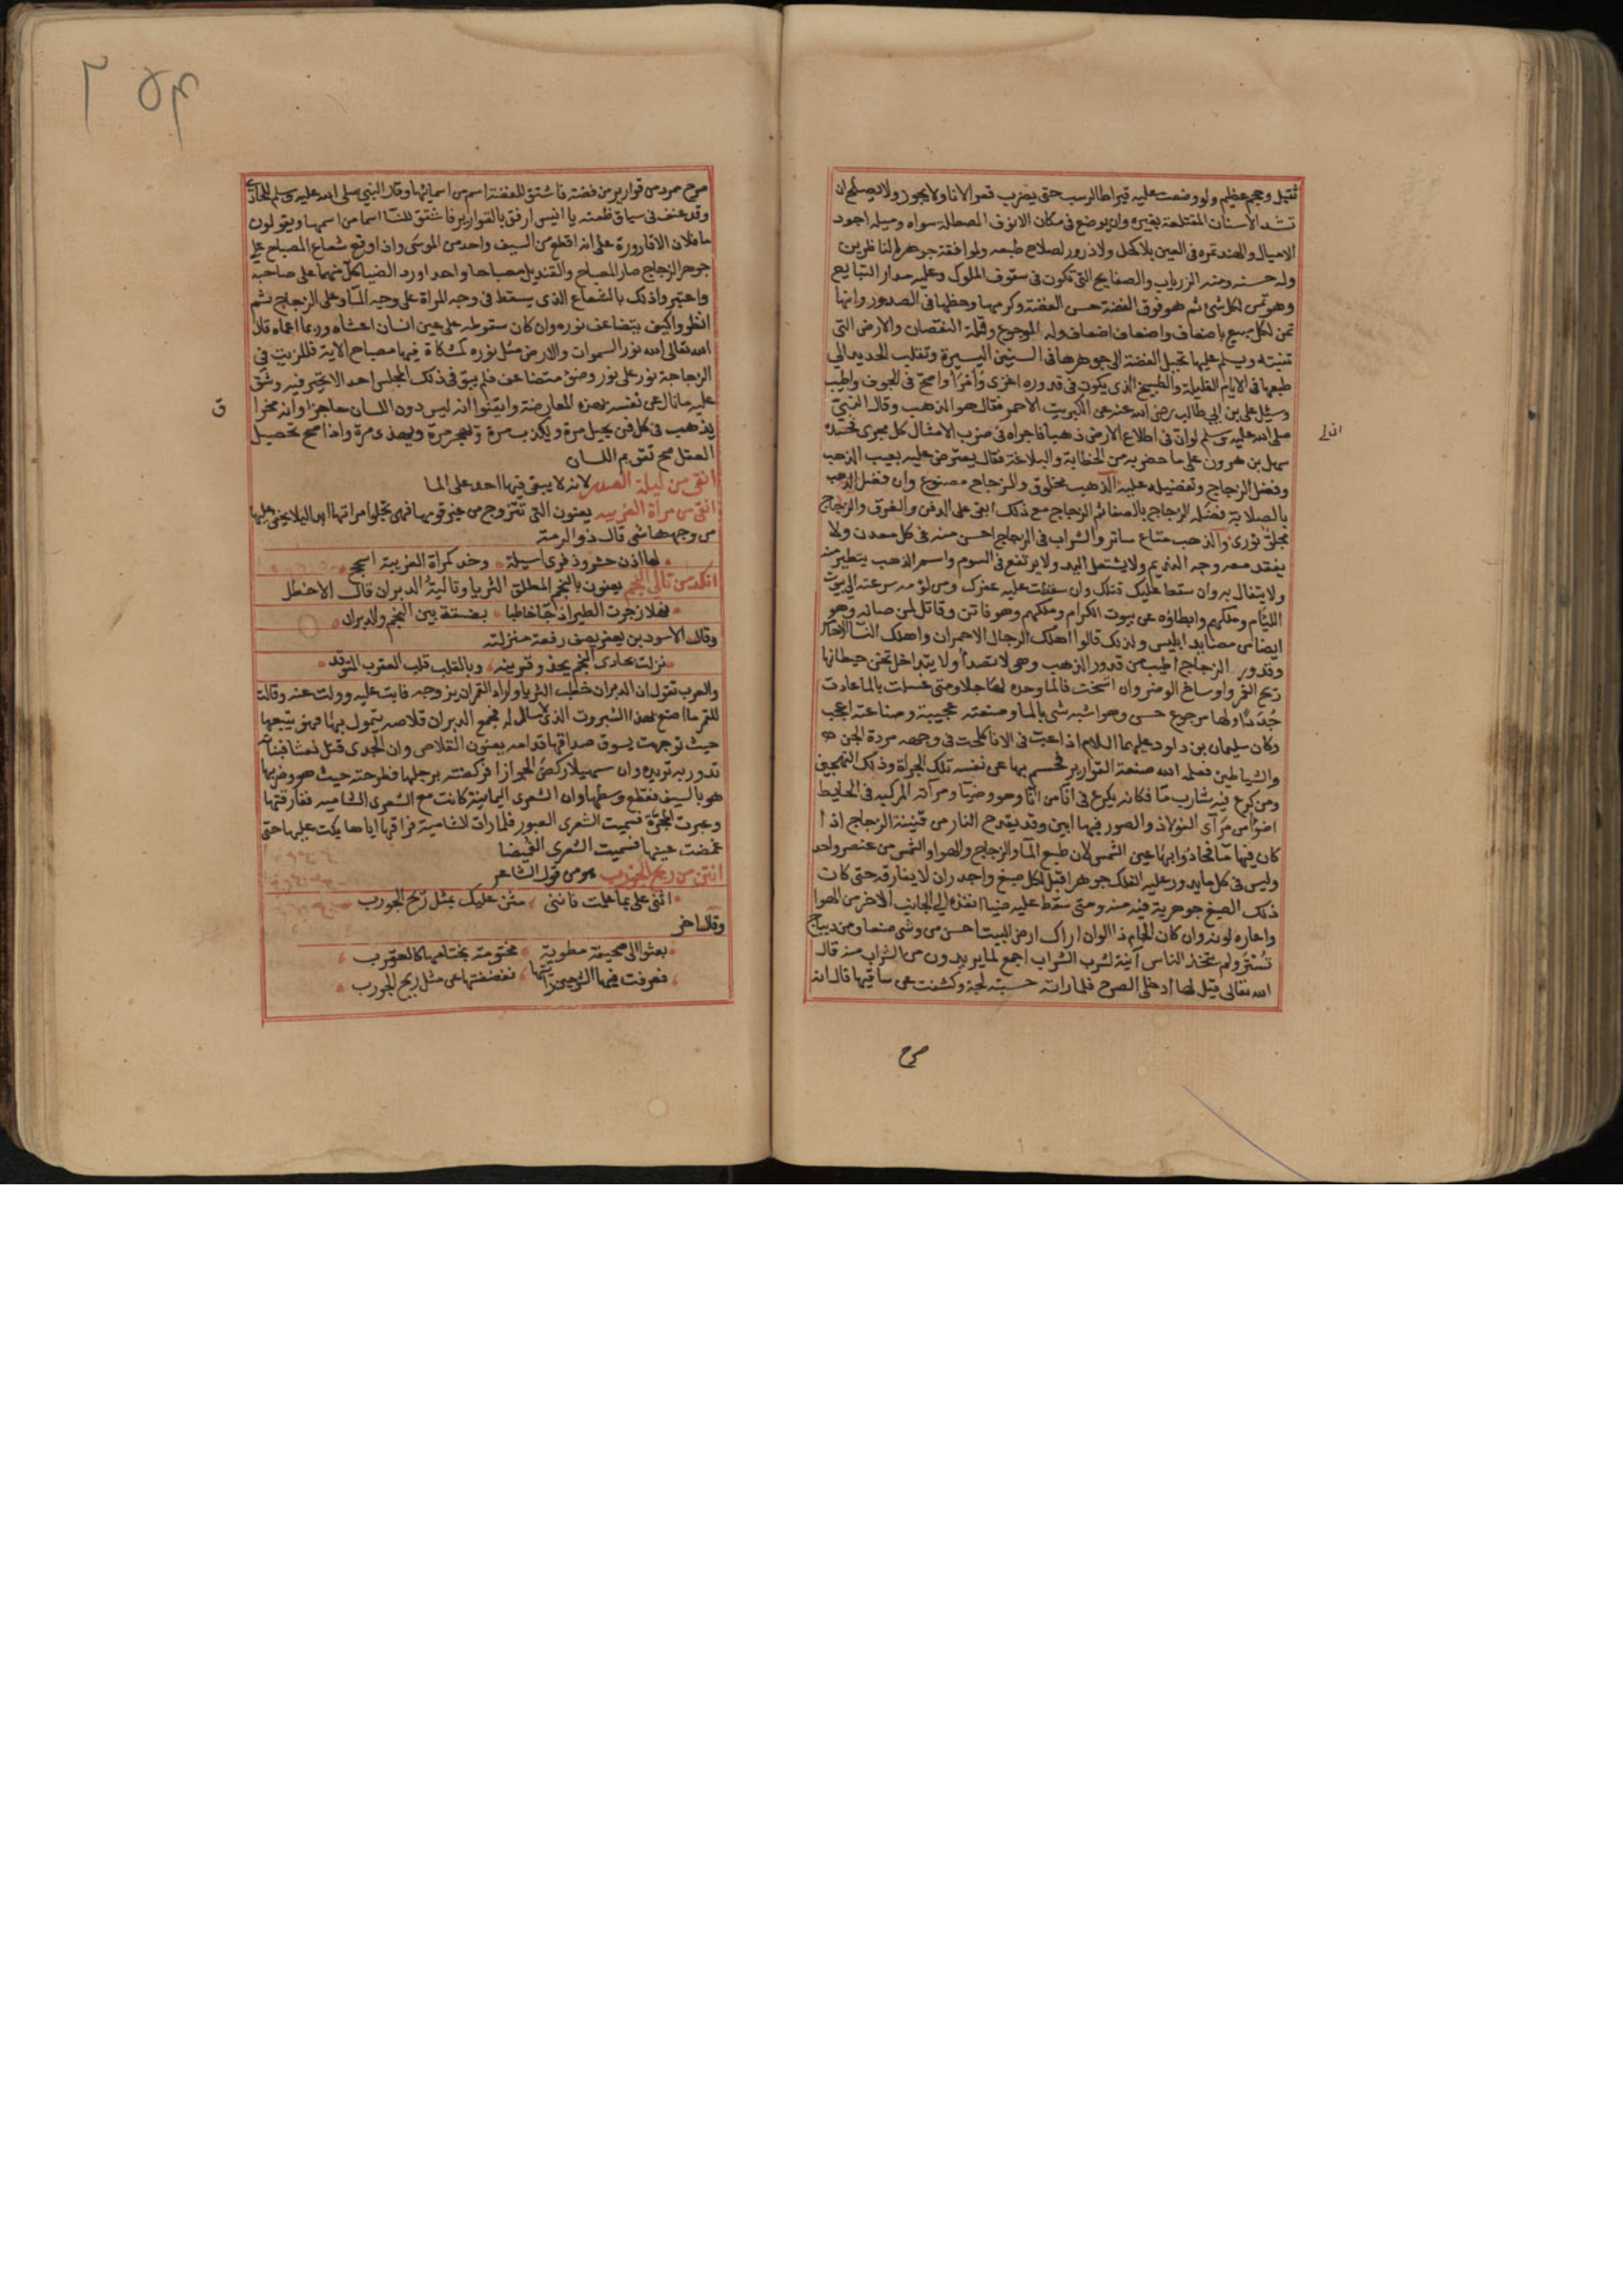 ثقيل وحجم عظيم ولو وضعت عليه قيراطا لرسب حتى يضرب قعر الاناء ولا يجوز ولا يصلح ان
تشد الاسنان المقتلعة بغيره وان يوضع في مكان الانوف المصطلمة سواه وميله اجود
الاميال والهند تمره في العين بلا كحل ولا ذرور لصلاح طبعه ولموافقة جوهره لناظرين
وله حسنه ومنه الزرياب والصفايح التي تكون في سقوف الملوك وعليه مدار التبايع
وهو ثمن لكل شئ ثم هو فوق الفضة حسن الفضة وكرمها وحظها في الصدور وانها
ثمن لكل مبيع باضعاف واضعاف اضعاف وله المرجوع وقلة النقصان والارض التي
تنبته ويسلم عليها تحيل الفضة الى جوهرها في السنين اليسيرة وتقلب الحديد الى
طبعها في الايام القليلة والطبيخ الذي يكون في قدوره اغذى وامرأ واصح في الجوف واطيب
وسئل علي بن ابي طالب رضي الله عنه عن الكبريت الاحمر فقال هو الذهب وقال النبي
صلى الله عليه وسلم لو ان في اطلاع الارض ذهبا فاجراه في ضرب الامثال كل مجرى فحسده
سهل بن هرون على ما حضر به من الخطابة والبلاغة فقال يعترض عليه يعيب الذهب
وفضل الزجاج وتفضيله عليه الذهب مخلوق والزجاج مصنوع وان فضل الذهب
بالصلابة فضله الزجاج بالصفا ثم الزجاج مع ذلك ابقى على الدفن والغرق والزجاج
مجلو نوري والذهب متاع ساتر والشراب في الزجاج احسن منه في كل معدن ولا
يفقد معه وجه النديم ولا يثقل اليد ولا يرتفع في السوم واسم الذهب يتطير منه
ولا يتفال به وان سقط عليك قتلك وان سقطت عليه عقرك ومن لؤمه سرعته الى بيوت
اللئام وملكهم وابطاؤه عن بيوت الكرام وملكهم وهو فاتن وقاتل لمن صانه وهو
ايضا من مصايد ابليس ولذلك قالوا اهلك الرجال الاحمران واهلك النسا الاحامر
وقدور الزجاج اطيب من قدور الذهب وهي لا تصدأ ولا يتداخل تحت حيطانها
ريح الغمر واوساخ الوضر وان اتسخت فالما وحده لها جلا ومتى غسلت بالما عادت
جددا ولها مرجوع حسن وهو اشبه شئ بالما وصنعته عجيبة وصناعته اعجب
وكان سليمان بن داود عليهما السلام اذا عب في الانا كلحت في وجهه مردة الجن
والشياطين فعلمه الله صنعة القوارير فحسم بها عن نفسه تلك الجراة وذلك التهجين
ومن كرع فيه شارب ما فكانه يكرع في انا من الما وهو وضيا ومرآته المركبة في الحايط
اضوا من مرآي الفولاذ والصور فيها ابين وقد يقدح النار من قنينة الزجاج اذا
كان فيها ما فحاذوا بها عين الشمس لان طبع الما والزجاج والهوا والشمس من عنصر واحد
وليس في كل ما يدور عليه الفلك جوهر اقبل لكل صبغ واجدر ان لا يفارقه حتى كان
ذلك الصبغ جوهرية فيه منه ومتى سقط عليه ضيا انفذه الى الجانب الاخر من الهوا
واعاره لونه وان كان الجام ذا الوان اراك ارض البيت احسن من وشي صنعا ومن ديباج
تستر ولم يتخذ الناس آنية لشرب الشراب اجمع لما يريدون من الشراب منه قال
الله تعالى قيل لها ادخلي الصرح فلما راته حسبته لجة وكشفت عن ساقيها قال انه
صرح
صرح ممرد من قوارير من فضة فاشتق للفضة اسم من اسمائها وقال النبي صلى الله عليه وسلم للحادي
وقد عنف في سياق ظعنه يا انيس ارفق بالقوارير فاشتق للنسا اسما من اسمها ويقولون
ما فلان الا قارورة على انه اقطع من السيف واحد من الموسى واذا وقع شعاع المصباح على
جوهر الزجاج صار المصباح والقنديل مصباحا واحدا ورد الضيا كل منهما على صاحبه
واعتبروا ذلك بالشعاع الذي يسقط في وجه المراة على وجه الما وعلى الزجاج ثم
انظروا كيف يتضاعف نوره وان كان سقوطه على عين انسان اعشاه وربما اعماه قال
الله تعالى الله نور السموات والارض مثل نوره كمشكاة فيها مصباح الاية فللزيت في
الزجاجة نور على نور وضو متضاعف فلم يبق في ذلك المجلس احد الا تحير فيه وشق
عليه ما نال من نفسه بهذه المعارضة وايقنوا انه ليس دون اللسان حاجزا وانه مخرا
يذهب في كل فن يخيل مرة ويكذب مرة ويهجر مرة ويهذي مرة واذا صح تحصيل
ق
العقل صح تقويم اللسان
انقى من ليلة الصدر لانه لا يبقى فيها احد على الما
انقى من مراة الغريبه يعنون التي تتزوج من غير قومها فهي تجلوا مراتها ابدا ليلا يخفى عليها
من وجهها شي قال ذو الرمة
لها اذن حشر وذفرى اسيلة وخد كمراة الغريبة اسجح
انكد من تالي النجم يعنون بالنجم المطلق الثريا وتاليه الدبران قال الاخطل
فهلا زجرت الطير اذ جا خاطبا بضيقة بين النجم والدبران
وقال الاسود بن يعفر يصف رفعة منزلته
نزلت بحادي النجم يحدو قرينه وبالقلب قلب العقرب المتوقد
والعرب تقول ان الدبران خطب الثريا واراد القمر ان يزوجه فابت عليه وولت عنه وقالت
للقمر ما اصنع بهذا السبروت الذي لا مال له فجمع الدبران قلاصه يتمول بها فهو يتبعها
حيث توجهت يسوق صداقها قدامه يعنون القلاص وان الجدى قتل نعشا فبناته
تدور به تريده وان سهيلا ركض الجوزا فركضته برجلها فطرحته حيث هو وضربها
هو بالسيف فقطع وسطها وان الشعرى اليمانية كانت مع الشعرى الشاميه ففارقتها
وعبرت المجرة فسميت الشعرى العبور فلما رات الشامية فراقها اياها بكت عليها حتى
غمضت عينها فسميت الشعرى الغميضا
انتن من ريح الجورب هو من قول الشاعر
اثني علي بما علمت فانني مثن عليك بمثل ريح الجورب
وقال اخر
بعثوا الي صحيفة مطوية مختومة بختامها كالعقرب
فعرفت فيها الشر حين رايتها ففضضتها عن مثل ريح الجورب